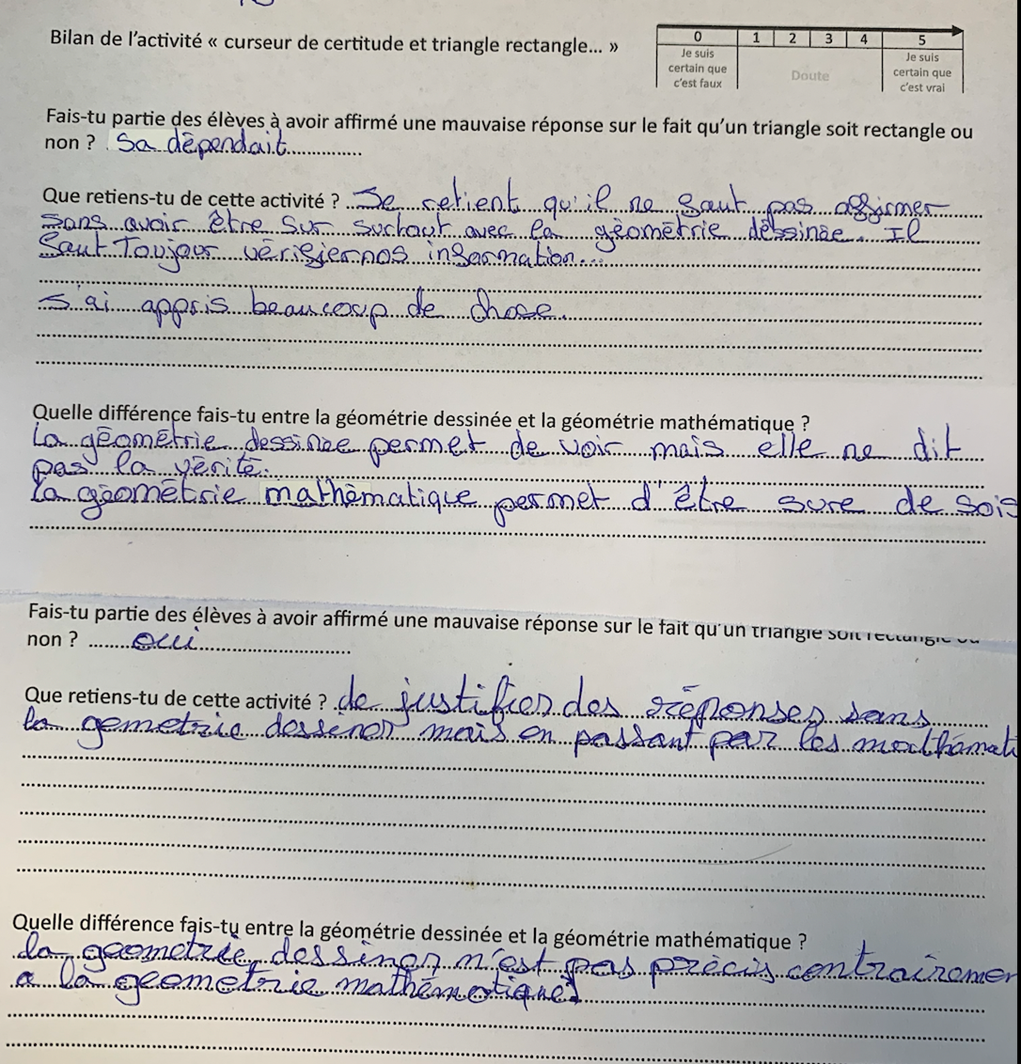 Bilan de l'activité « curseur de certitude et triangle rectangle... »
0 1 2 3 4 5
Je suis certain que c'est faux
Doute
Je suis certain que c'est vrai
Fais-tu partie des élèves à avoir affirmé une mauvaise réponse sur le fait qu'un triangle soit rectangle ou
non ? Sa dépendait
Que retiens-tu de cette activité ? Je retient qu'il ne faut pas affirmer
sans avoir être sur surtout avec la géométrie dessinée. Il
faut Toujour vérifier nos information...
J'ai appris beaucoup de chose.
Quelle différence fais-tu entre la géométrie dessinée et la géométrie mathématique ?
La géométrie dessinée permet de voir mais elle ne dit
pas la vérité.
la géométrie mathématique permet d'être sure de sois
Fais-tu partie des élèves à avoir affirmé une mauvaise réponse sur le fait qu'un triangle soit rectangle ou
non ? oui
Que retiens-tu de cette activité ? de justifier des réponses sans
la gemetrie dessiner mais en passant par les mathémati
Quelle différence fais-tu entre la géométrie dessinée et la géométrie mathématique ?
la geometrie dessiner n'est pas précis contrairemen
a la geometrie mathématique